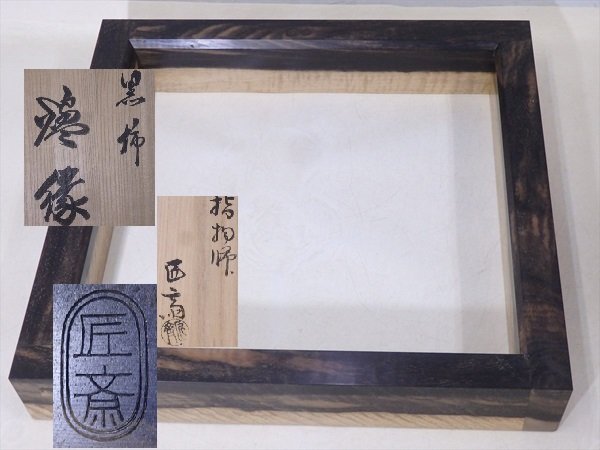 黒柿
炉縁
指物師
匠斎
匠斎